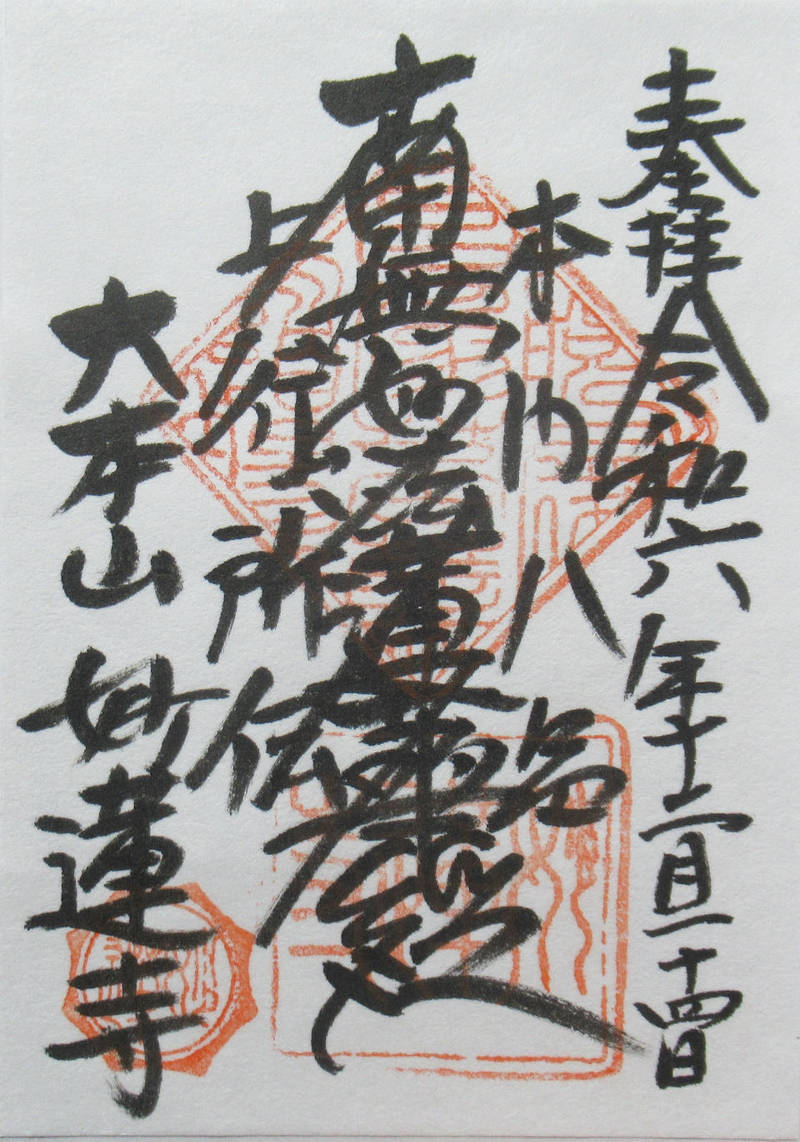 奉拝 令和六年十二月二十四日
本門八品
南無妙法蓮華經
上行所伝
大本山 妙蓮寺